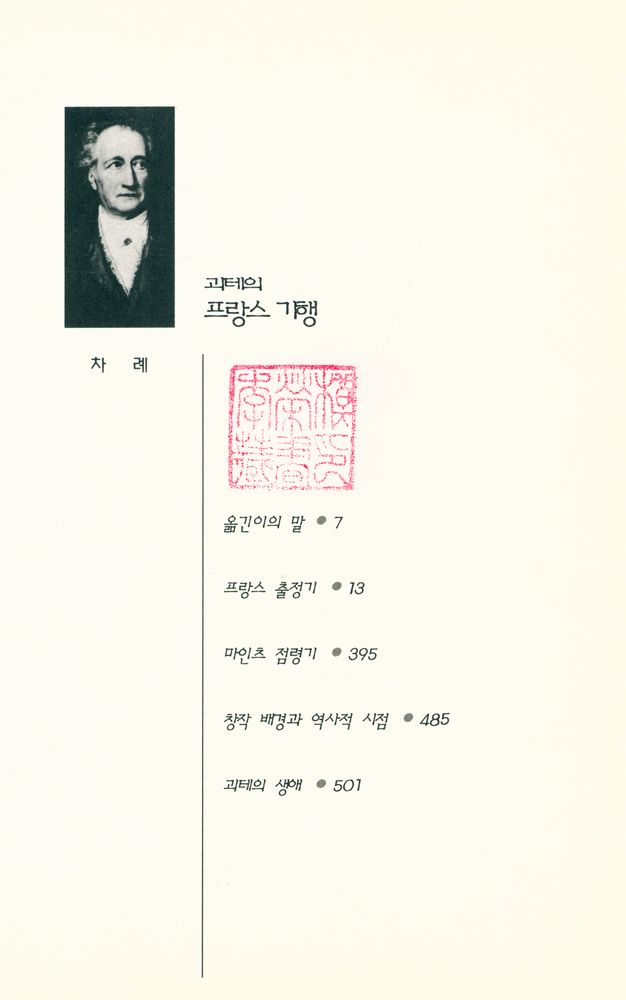 괴테의
프랑스 기행
차 례
옮긴이의 말 ● 7
프랑스 출정기 ● 13
마인츠 점령기 ● 395
창작 배경과 역사적 시점 ● 485
괴테의 생애 ● 501